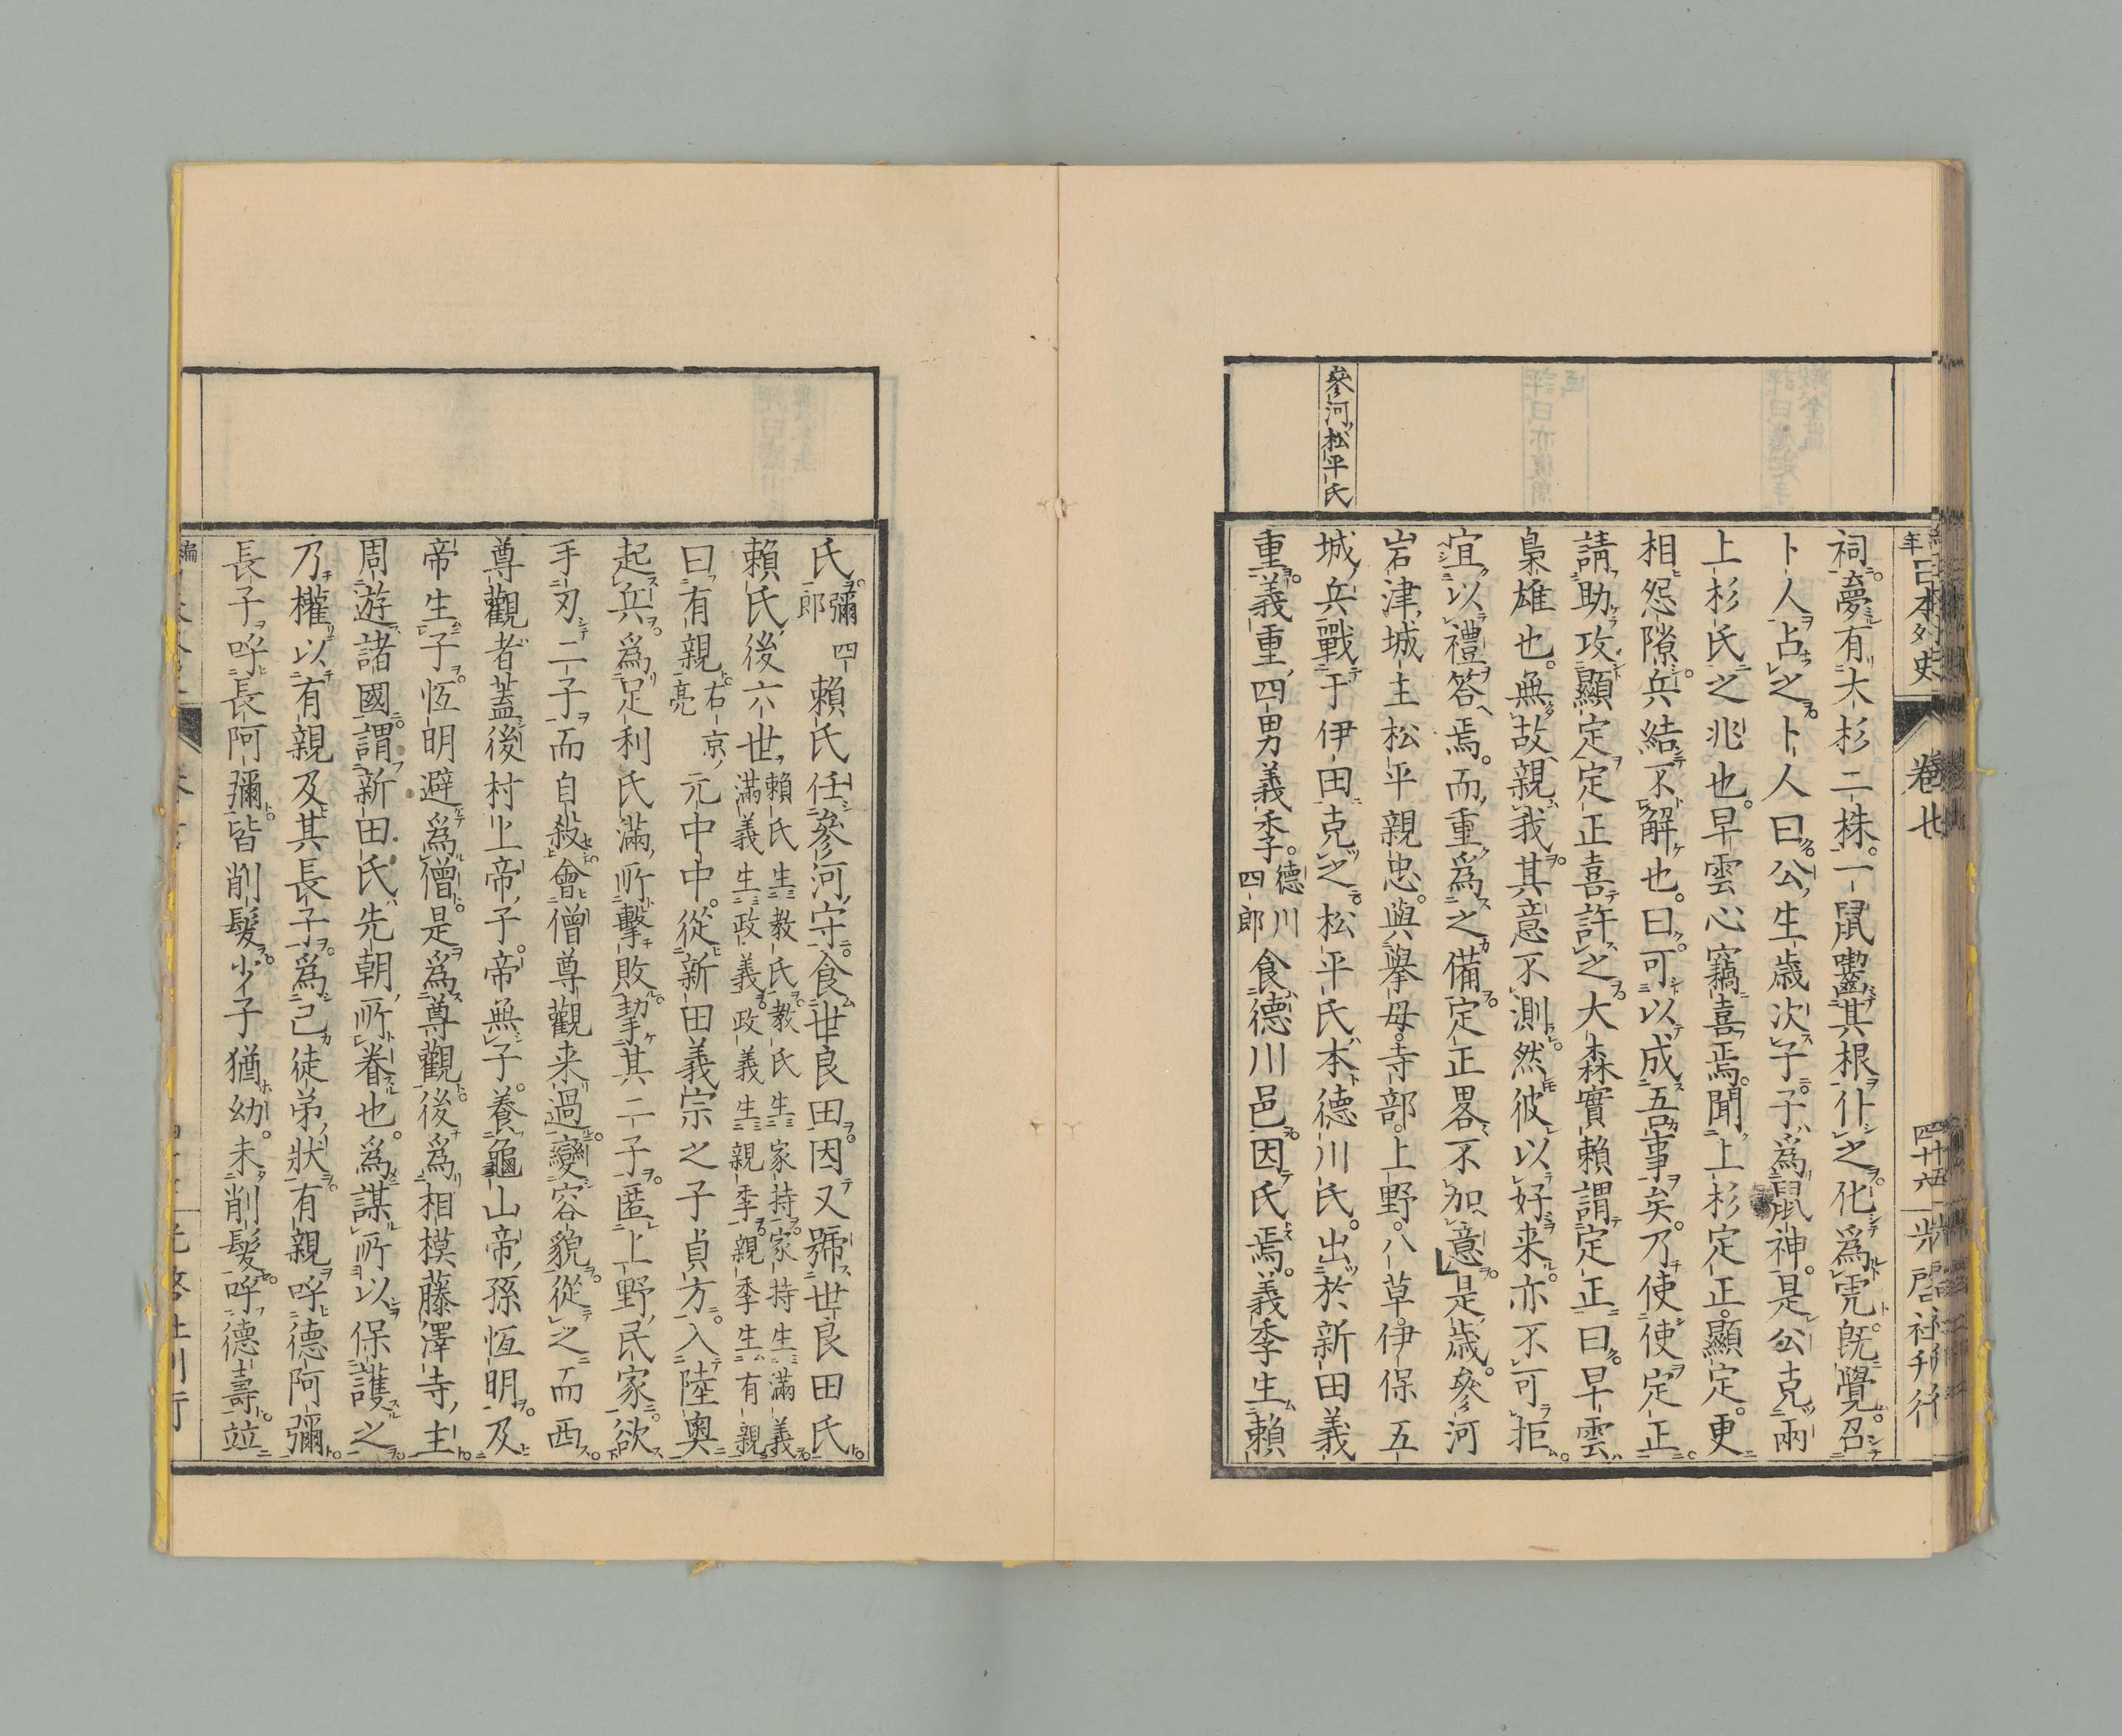 本外史
卷廿
光啓社刊行
祠夢有大杉二株一鼠嚙其根仆之化爲虎旣覺召
卜人占之卜人曰公生歳次子子爲鼠神是公克兩
上杉氏之兆也早雲心竊喜焉聞上杉定正顯定更
相怨隙兵結不解也曰可以成吾事矣乃使使定正
請助攻顯定定正喜許之大森實賴謂定正曰早雲
梟雄也無故親我其意不測然彼以好来亦不可拒
宜以禮答焉而重爲之備定正畧不加意是歳參河
岩津城主松平親忠與擧母寺部上野八草伊保五
參河松平氏
城兵戰于伊田克之松平氏本德川氏出於新田義
重義重四男義季德川四郎食德川邑因氏焉義季生賴
氏彌四郎賴氏任參河守食世良田因又號世良田氏
賴氏後六世賴氏生教氏教氏生家持家持生滿義滿義生政義政義生親季親季生有親
曰有親右京亮元中中從新田義宗之子貞方入陸奧
起兵爲足利氏滿所擊敗挈其二子匿上野民家欲
手刃二子而自殺會僧尊觀来過變容貌從之而西
尊觀者蓋後村上帝子帝無子養龜山帝孫恆明及
帝生子恆明避爲僧是爲尊觀後爲相模藤澤寺主
周游諸國謂新田氏先朝所眷也爲謀所以保護之
乃權以有親及其長子爲己徒弟狀有親呼德阿彌
長子呼長阿彌皆削髮少子猶幼未削髮呼德壽竝